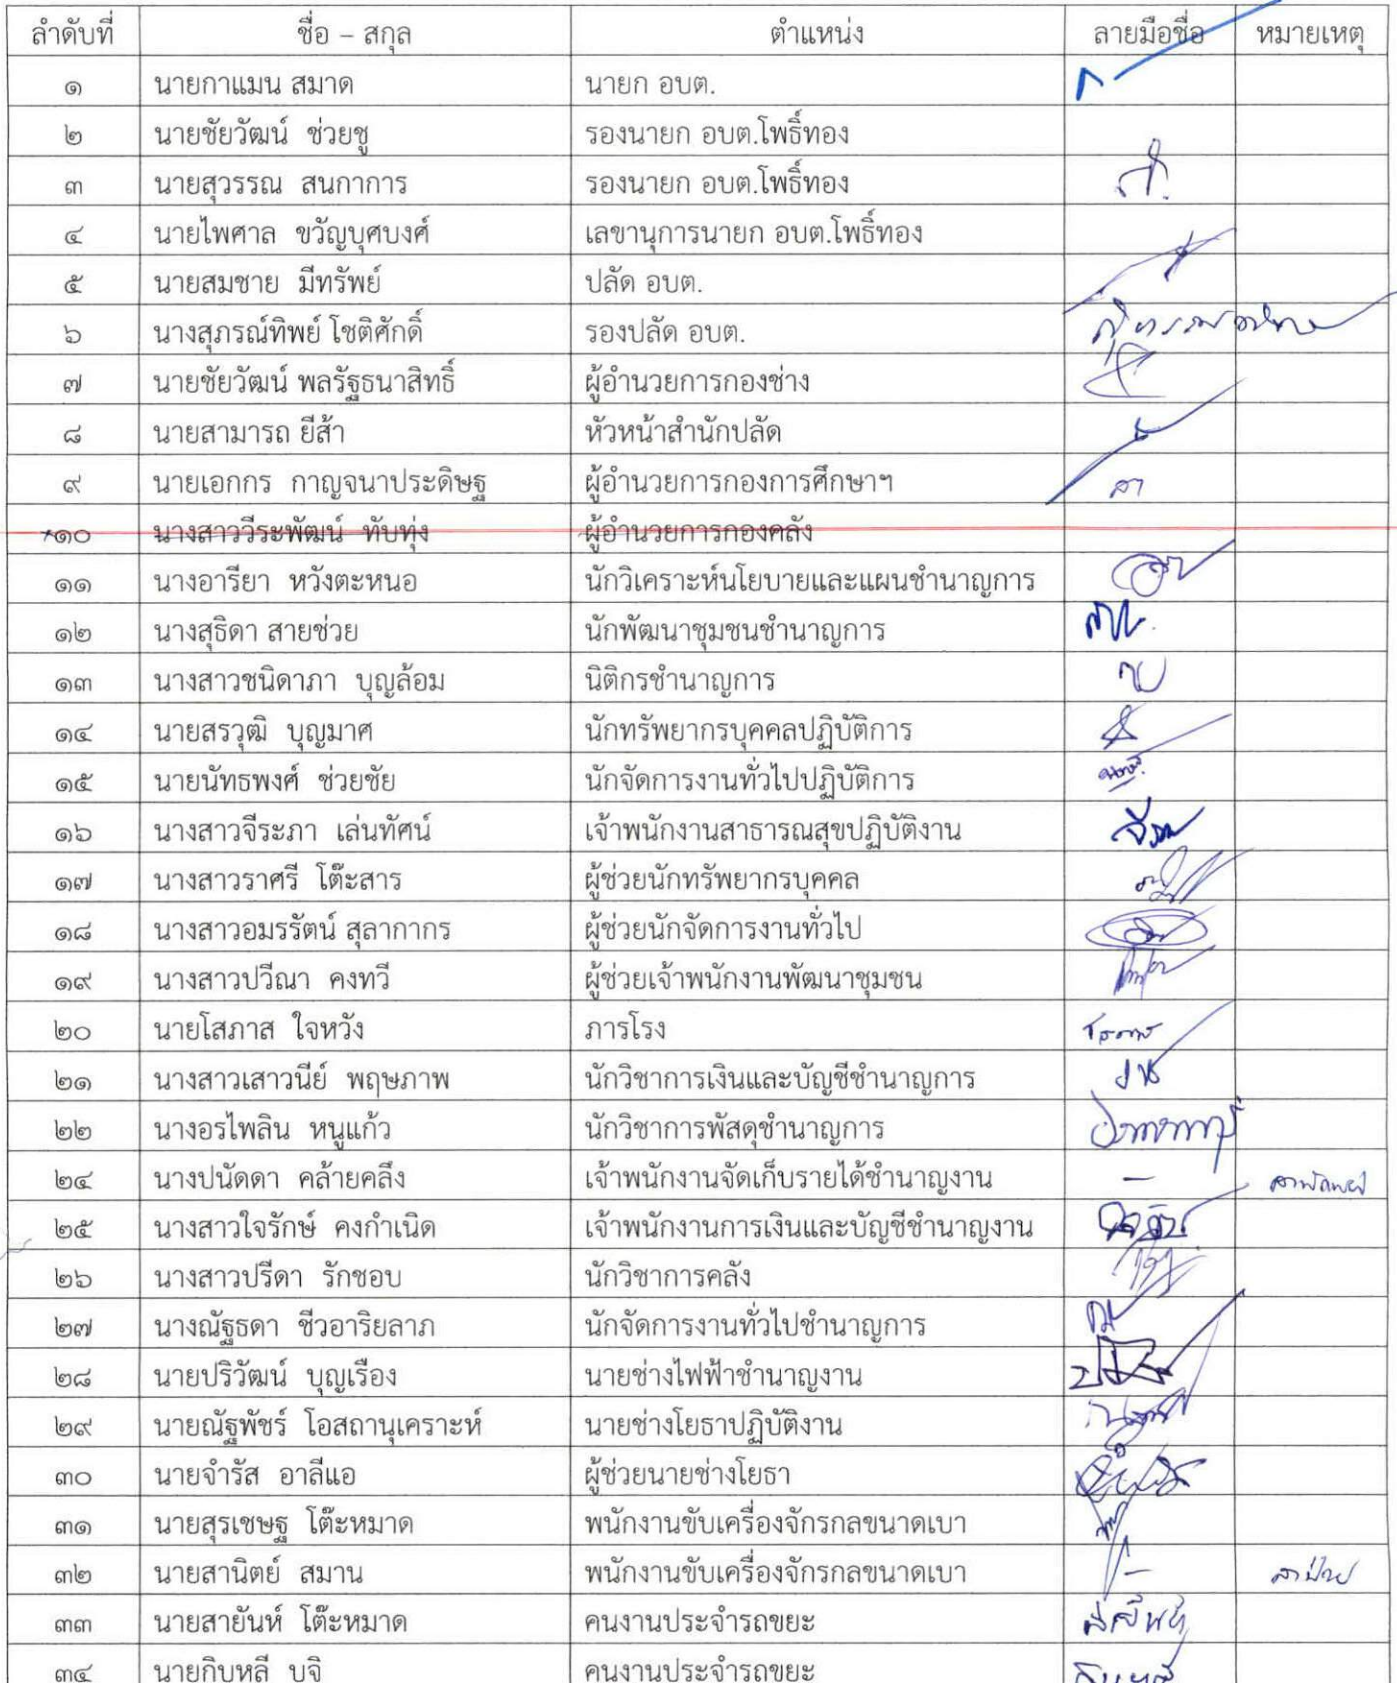 ลำดับที่ ชื่อ – สกุล ตำแหน่ง ลายมือชื่อ หมายเหตุ
๑ นายกาแมน สมาด นายก อบต.
๒ นายชัยวัฒน์ ช่วยชู รองนายก อบต.โพธิ์ทอง
๓ นายสุวรรณ สนกาการ รองนายก อบต.โพธิ์ทอง
๔ นายไพศาล ขวัญบุศบงศ์ เลขานุการนายก อบต.โพธิ์ทอง
๕ นายสมชาย มีทรัพย์ ปลัด อบต.
๖ นางสุภรณ์ทิพย์ โชติศักดิ์ รองปลัด อบต.
๗ นายชัยวัฒน์ พลรัฐธนาสิทธิ์ ผู้อำนวยการกองช่าง
๘ นายสามารถ ยีส้า หัวหน้าสำนักปลัด
๙ นายเอกกร กาญจนาประดิษฐ ผู้อำนวยการกองการศึกษาฯ ลา
๑๐ นางสาววีระพัฒน์ ทับทุ่ง ผู้อำนวยการกองคลัง
๑๑ นางอารียา หวังตะหนอ นักวิเคราะห์นโยบายและแผนชำนาญการ
๑๒ นางสุธิดา สายช่วย นักพัฒนาชุมชนชำนาญการ
๑๓ นางสาวชนิดาภา บุญล้อม นิติกรชำนาญการ
๑๔ นายสรวุฒิ บุญมาศ นักทรัพยากรบุคคลปฏิบัติการ
๑๕ นายนัทธพงศ์ ช่วยชัย นักจัดการงานทั่วไปปฏิบัติการ
๑๖ นางสาวจีระภา เล่นทัศน์ เจ้าพนักงานสาธารณสุขปฏิบัติงาน
๑๗ นางสาวราศรี โต๊ะสาร ผู้ช่วยนักทรัพยากรบุคคล
๑๘ นางสาวอมรรัตน์ สุลากากร ผู้ช่วยนักจัดการงานทั่วไป
๑๙ นางสาวปวีณา คงทวี ผู้ช่วยเจ้าพนักงานพัฒนาชุมชน
๒๐ นายโสภาส ใจหวัง ภารโรง
๒๑ นางสาวเสาวนีย์ พฤษภาพ นักวิชาการเงินและบัญชีชำนาญการ
๒๒ นางอรไพลิน หนูแก้ว นักวิชาการพัสดุชำนาญการ
๒๔ นางปนัดดา คล้ายคลึง เจ้าพนักงานจัดเก็บรายได้ชำนาญงาน – ลาพักผ่อน
๒๕ นางสาวใจรักษ์ คงกำเนิด เจ้าพนักงานการเงินและบัญชีชำนาญงาน
๒๖ นางสาวปรีดา รักชอบ นักวิชาการคลัง
๒๗ นางณัฐธดา ชีวอาริยลาภ นักจัดการงานทั่วไปชำนาญการ
๒๘ นายปริวัฒน์ บุญเรือง นายช่างไฟฟ้าชำนาญงาน
๒๙ นายณัฐพัชร์ โอสถานุเคราะห์ นายช่างโยธาปฏิบัติงาน
๓๐ นายจำรัส อาลีแอ ผู้ช่วยนายช่างโยธา
๓๑ นายสุรเชษฐ โต๊ะหมาด พนักงานขับเครื่องจักรกลขนาดเบา
๓๒ นายสานิตย์ สมาน พนักงานขับเครื่องจักรกลขนาดเบา – ลาป่วย
๓๓ นายสายันห์ โต๊ะหมาด คนงานประจำรถขยะ
๓๔ นายกิบหลี บจิ คนงานประจำรถขยะ